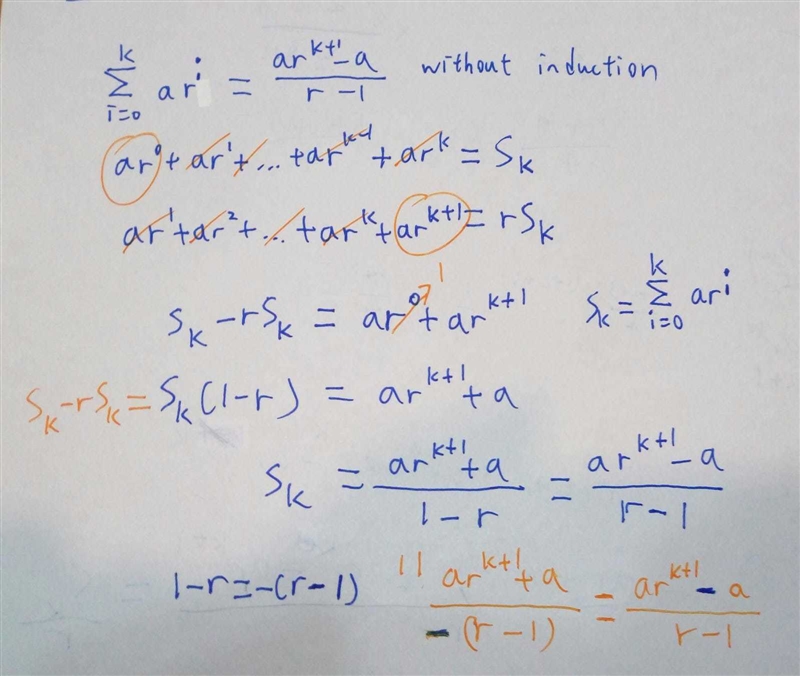 \sum_{i=0}^{k} ar^{i} = \frac{ar^{k+1}-a}{r-1} without induction
ar^{0} + ar^{1} + ... + ar^{k-1} + ar^{k} = S_{k}
ar^{1} + ar^{2} + ... + ar^{k} + ar^{k+1} = rS_{k}
S_{k} - rS_{k} = ar^{0} + ar^{k+1}
1
S_{k} = \sum_{i=0}^{k} ar^{i}
S_{k} - rS_{k} = S_{k}(1-r) = ar^{k+1} + a
S_{k} = \frac{ar^{k+1}+a}{1-r} = \frac{ar^{k+1}-a}{r-1}
1-r = -(r-1) || \frac{ar^{k+1}+a}{-(r-1)} = \frac{ar^{k+1}-a}{r-1}